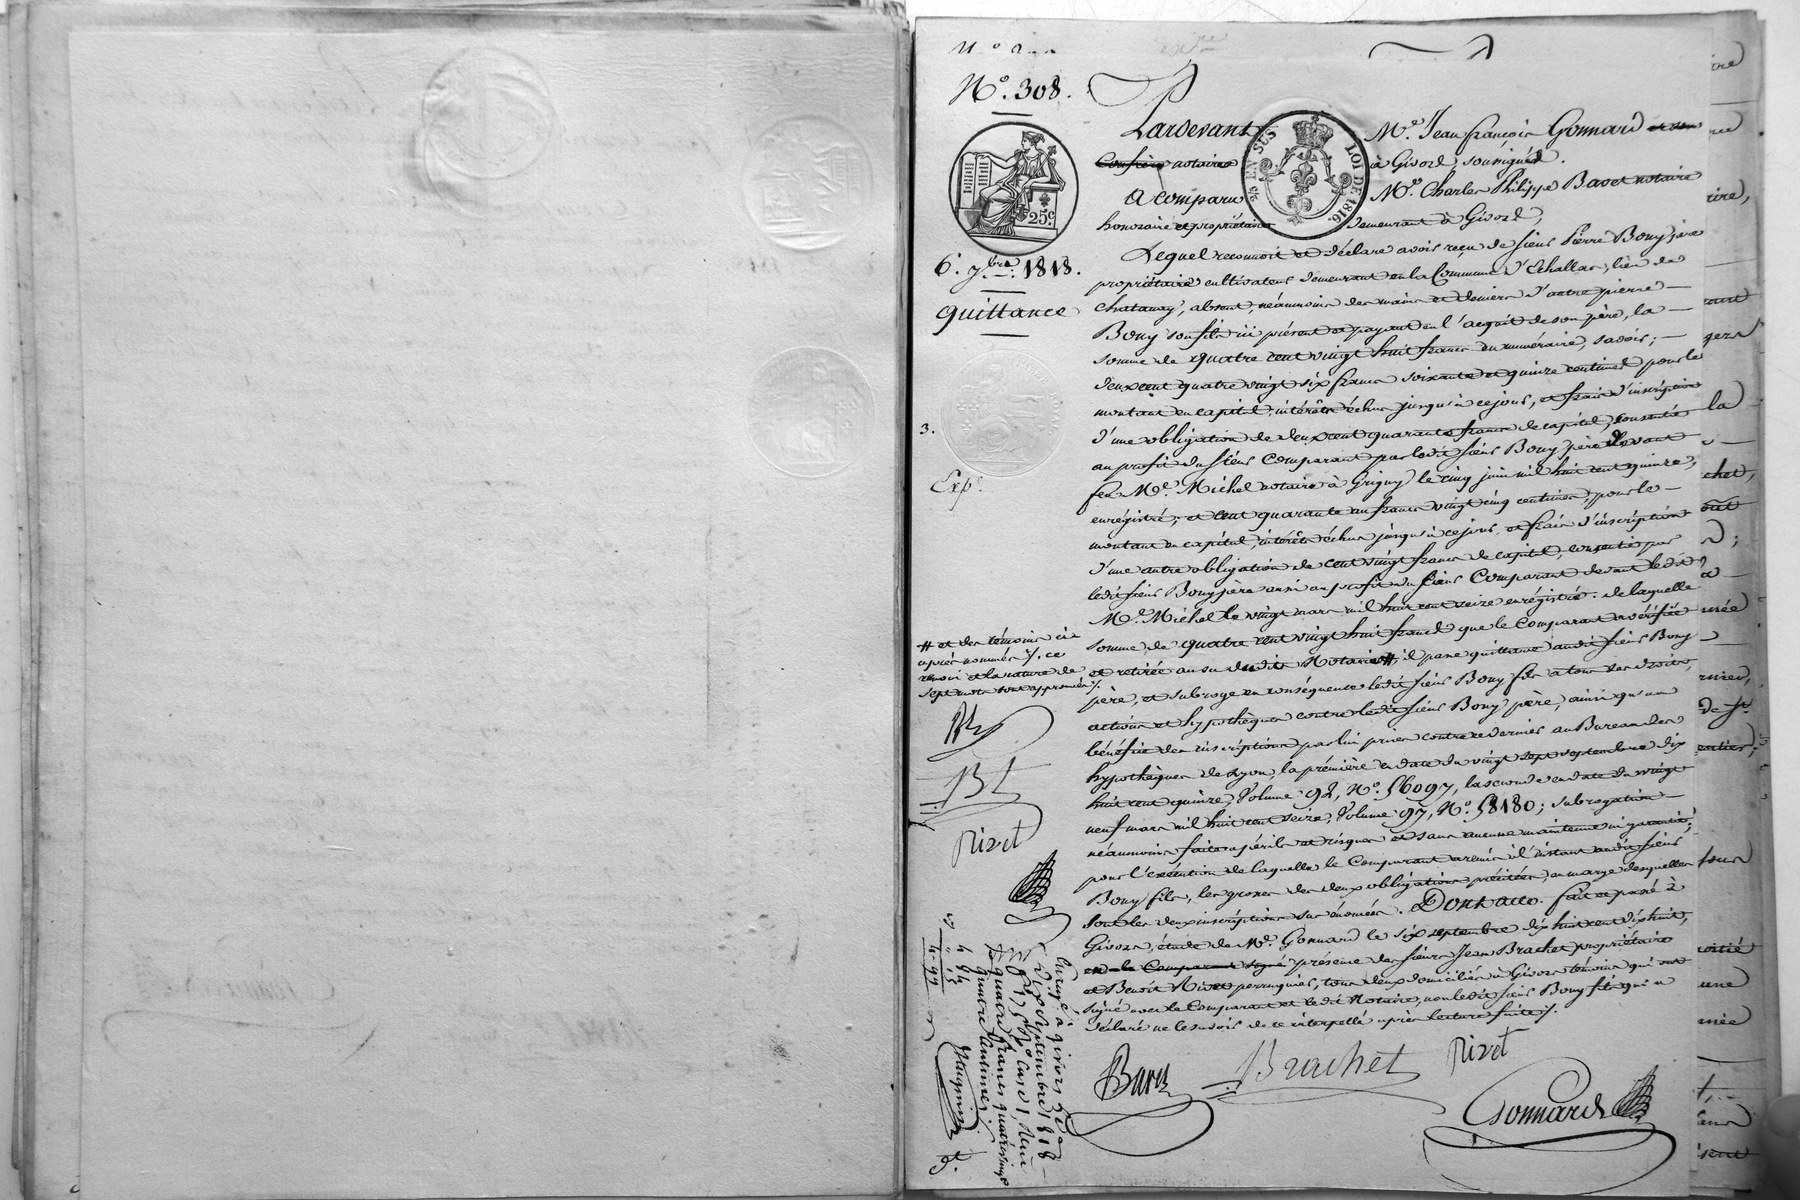 N.° 308.
25c
EN SUS LOI DE 1816.
6. 7bre 1818.
quittance
3.
Exp.
Pardevant M.e Jean françois Gonnard et son
Confrère notaires à Givors soussignés.
A comparu M.e Charles Philippe Baret notaire
honoraire et propriétaire demeurant à Givors,
Lequel reconnoit et déclare avoir reçu de sieur Pierre Bony père
propriétaire cultivateur demeurant en la Commune d'Echallas, lieu de
Chatanay, absent, néanmoins des mains et deniers d'autre pierre
Bony son fils ici présent et payant en l'acquit de son père, la
somme de quatre cent vingt huit francs en numéraire, savoir;
deux cent quatre vingt six francs soixante et quinze centimes pour le
montant en capital, intérêts échus jusqu'à ce jour, et frais d'inscription
d'une obligation de deux cent quarante francs de capital, consentie
au profit du sieur Comparant par ledit sieur Bony père devant
feu M.e Michel notaire à Grigny le cinq juin mil huit cent quinze,
enrégistré; et cent quarante un francs vingt cinq centimes, pour le
montant en capital, intérêts échus jusqu'à ce jour, et frais d'inscription
d'une autre obligation de cent vingt francs de capital, consentie par
ledit sieur Bony père aussi au profit du sieur Comparant devant ledit
M.e Michel le vingt mars mil huit cent seize enrégistré. de laquelle
somme de quatre cent vingt huit francs que le Comparant a vérifiée
et retirée au vu dudit Notaire #, il passe quittance audit sieur Bony
père, et subroge en conséquence ledit sieur Bony fils à tous ses droits,
actions et hypothèques contre ledit sieur Bony père, ainsi qu'au
bénéfice des inscriptions par lui prises contre ce dernier au Bureau des
hypothèques de Lyon, la première en date du vingt sept septembre dix
huit cent quinze, Volume 92, N.° 56097, la seconde en date du vingt
neuf mars mil huit cent seize, Volume 97, N.° 58180; subrogation
néanmoins faite à périls et risques et sans aucune maintenue ni garantie;
pour l'exécution de laquelle le Comparant a remis à l'instant audit sieur
Bony fils, les grosses des deux obligations précitées, en marge desquelles
sont les deux inscriptions sus énoncées. Dont acte. fait et passé à
Givors, étude de M.e Gonnard le six septembre dix huit cent dix huit,
et le Comparant signé présence des sieurs Jean Brachet propriétaire
et Benoît Rivet perruquier, tous deux domiciliés à Givors témoins qui ont
signé avec le Comparant et ledit Notaire, non ledit sieur Bony fils qui a
déclaré ne le savoir de ce interpellé après lecture faite.
# et des témoins ci
après nommés ce
renvoi et la rature de
sept mots sont approuvés.
Rivet
Enrégé à givors le
dix septembre 1818
quatre francs quatre vingt
quatre centimes.
Baret
Brachet
Rivet
Gonnard